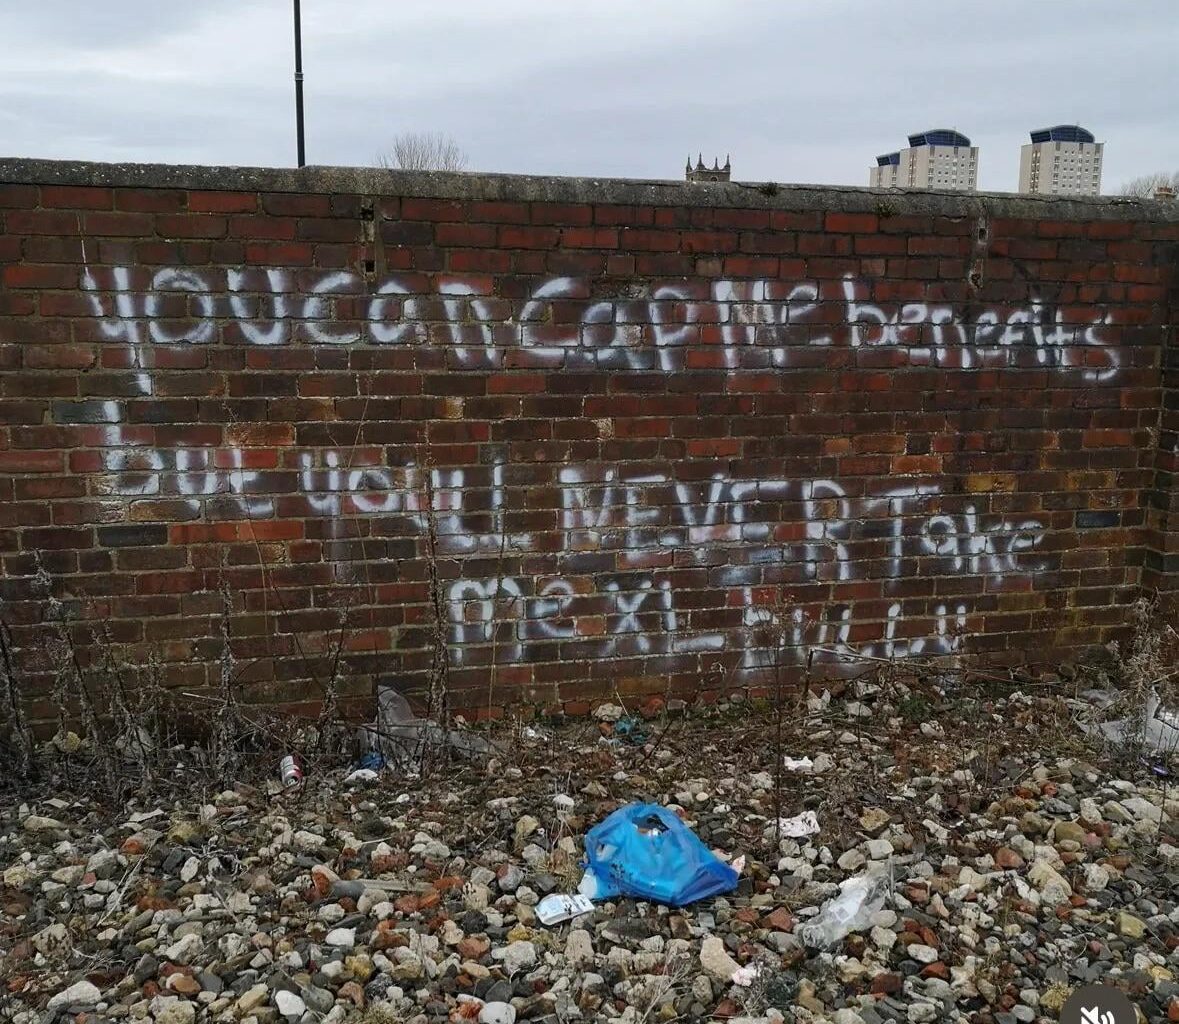 you can cap me benefits
but youll NEVER Take
me XL bULLy